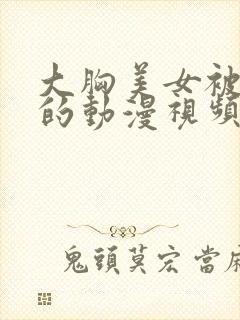 大胸美女被
的動漫視頻
鬼頭莫宏當麻